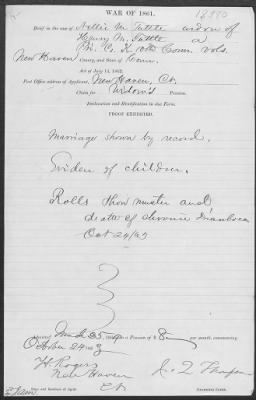 WAR OF 1861.
Brief in the case of Nettie M. Tuttle widow of
Henry M. Tuttle a
Pri. C. K Conn. vols.
New Haven County, and State of Conn.
Act of July 14, 1862.
Post Office address of Applicant, New Haven, Ct.
Claim for Widow's Pension.
Declaration and Identification in due Form.
PROOF EXHIBITED.
Marriage shown by record.
Eviden of children.
Rolls show muster and
death of chronic Diarrhoea
Oct 24/63
Admitted to a Pension of $8 per month, commencing
October 24
H. Rogers
New Haven
Ct
Name and Residence of Agent.
Examining Clerk.